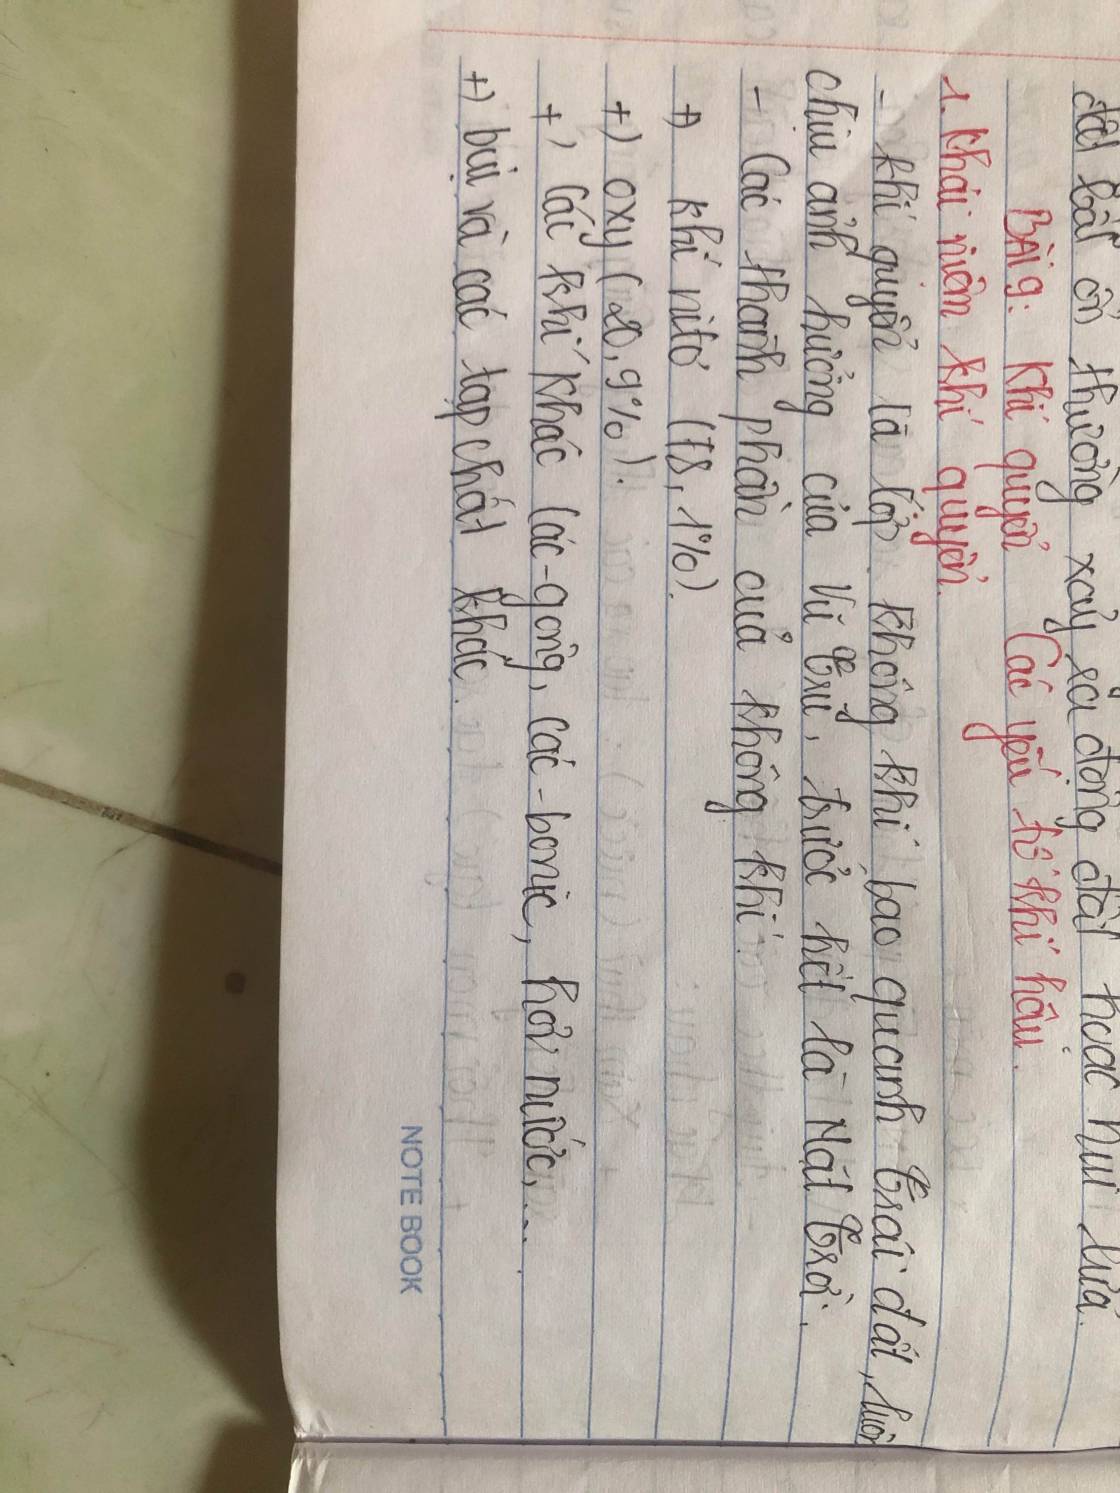 đất bất ổn thường xảy ra động đất hoặc núi lửa.
BÀI 9: Khí quyển Các yếu tố khí hậu.
1. Khái niệm khí quyển.
- Khí quyển là lớp không khí bao quanh trái đất, luôn
chịu ảnh hưởng của vũ trụ, trước hết là Mặt trời.
- Các thành phần của không khí.
+) khí nitơ (78,1%).
+) oxy (20,9%).
+) Các khí khác các-gông, các-bonic, hơi nước,...
+) bụi và các tạp chất khác.
NOTE BOOK